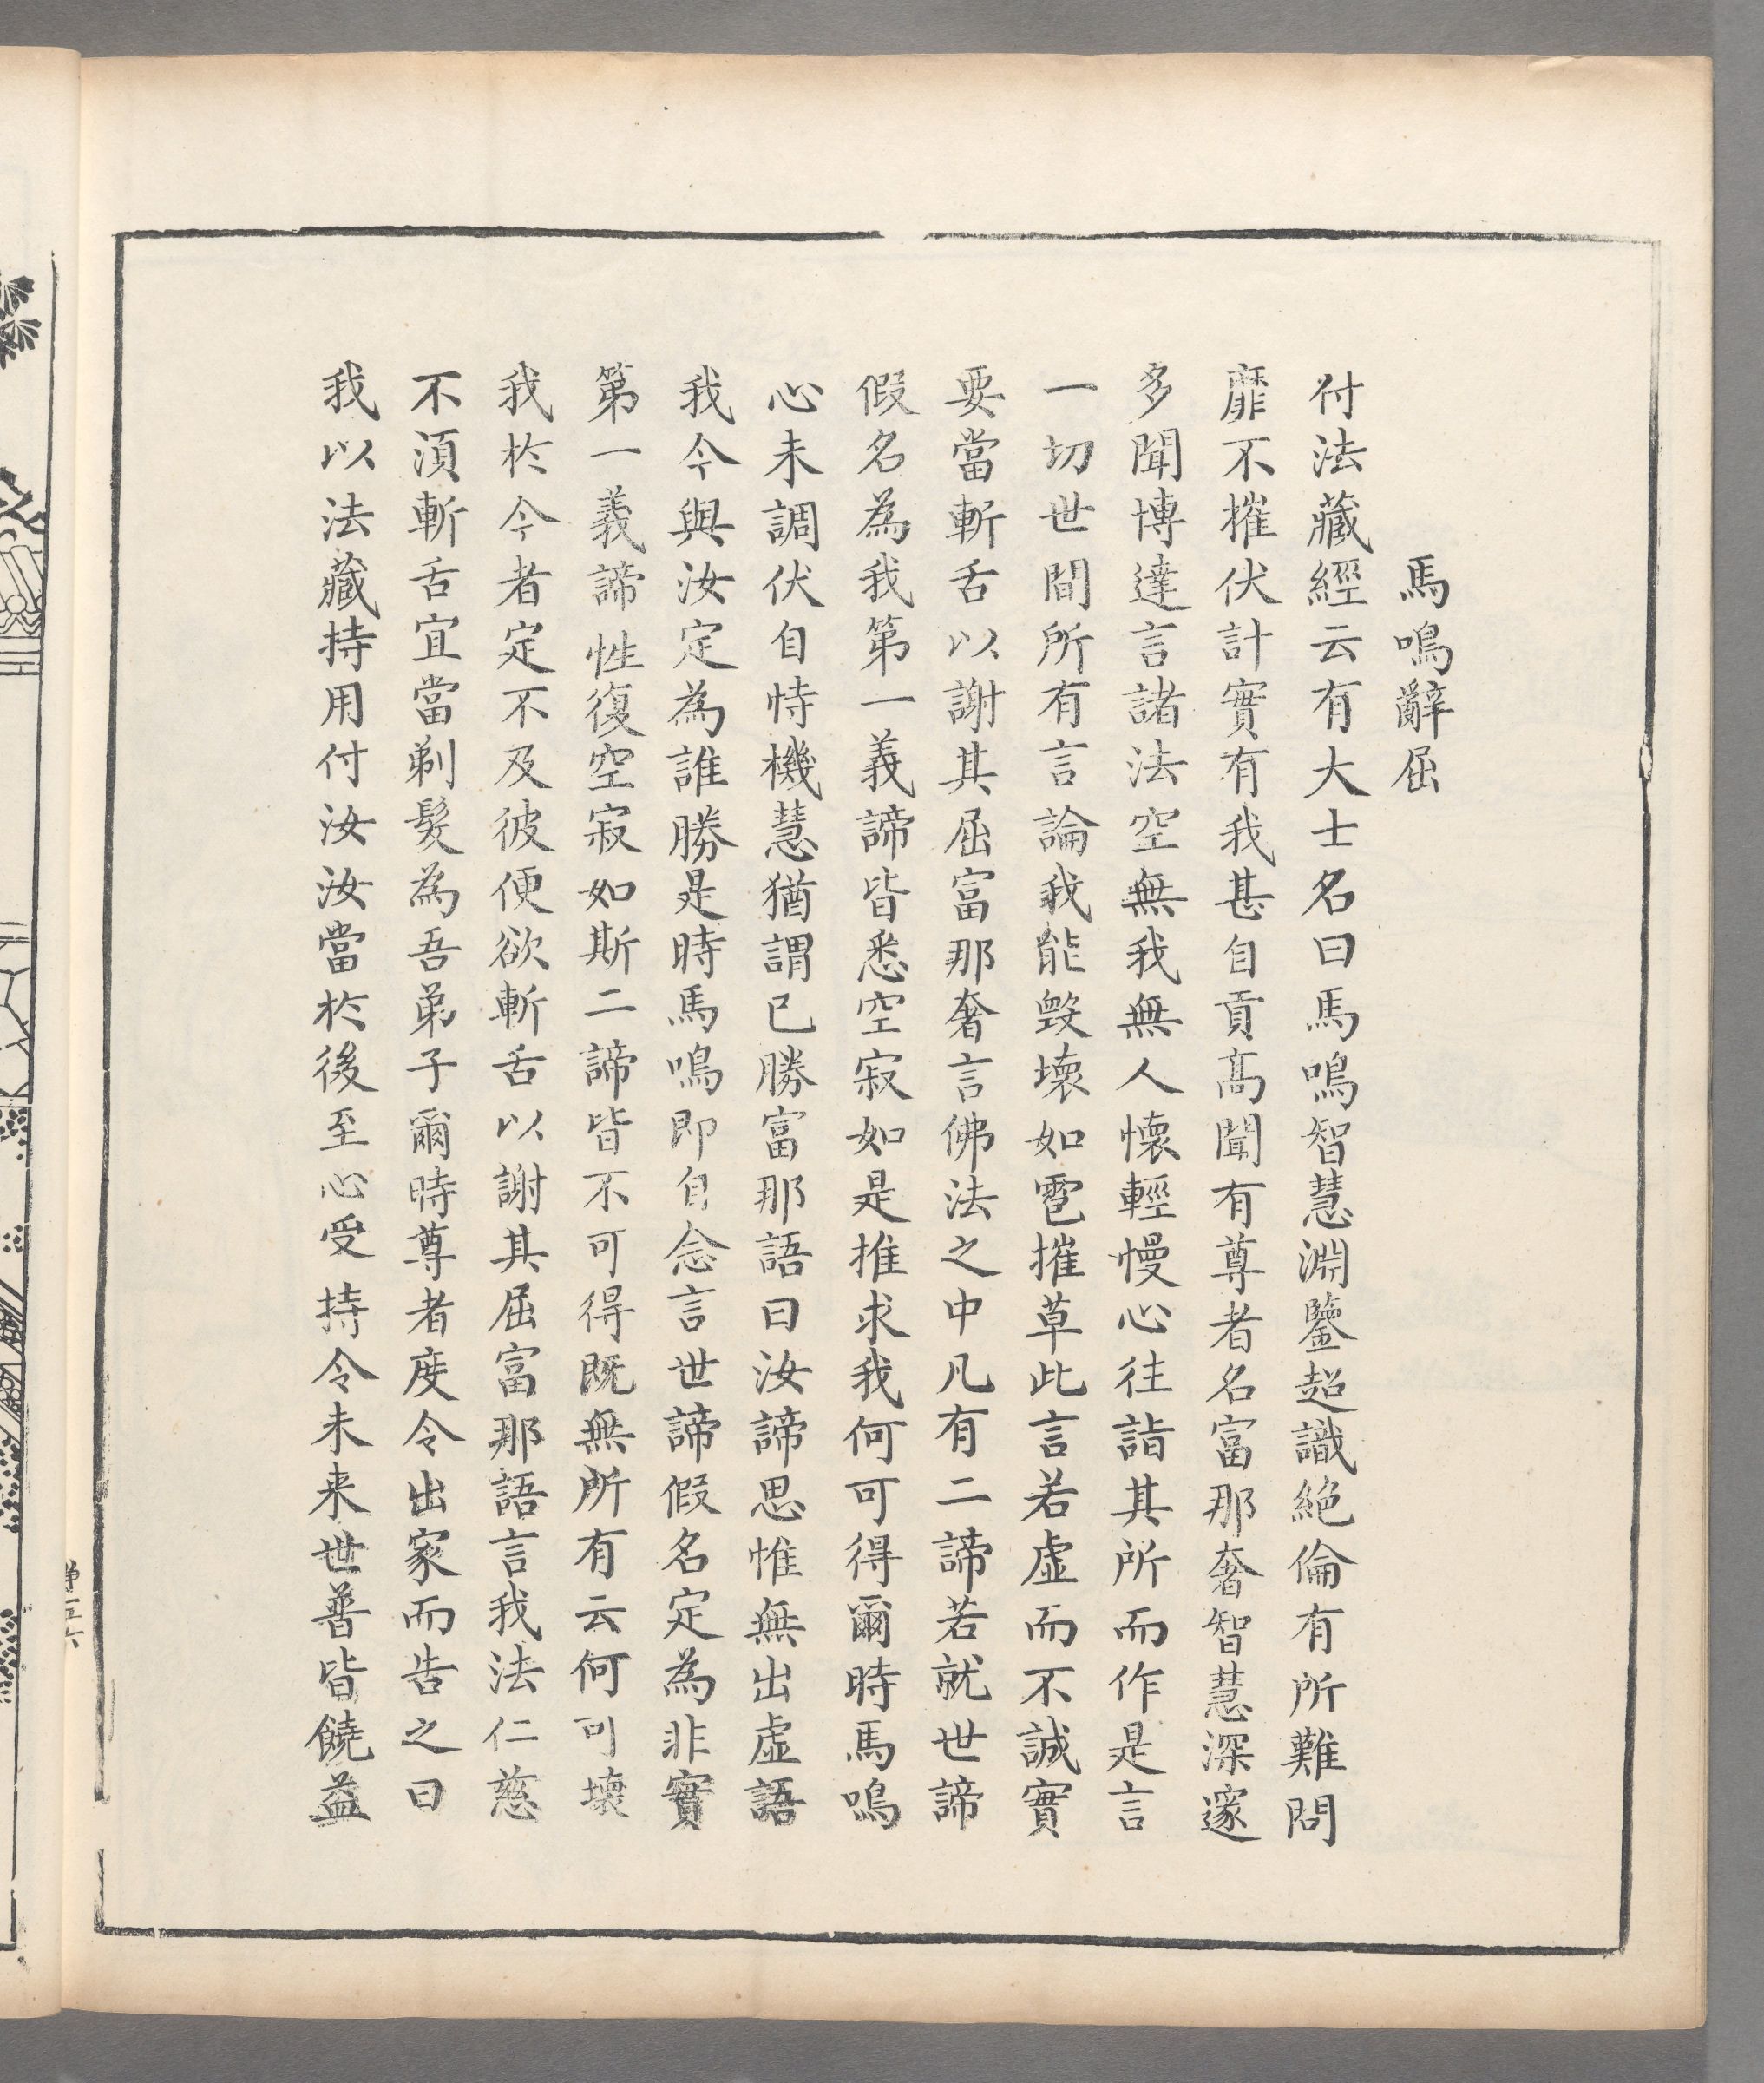 馬鳴辭屈
付法藏經云有大士名曰馬鳴智慧淵鑒超識絕倫有所難問
靡不摧伏計實有我甚自貢高聞有尊者名富那奢智慧深邃
多聞博達言諸法空無我無人懷輕慢心往詣其所而作是言
一切世間所有言論我能毀壞如雹摧草此言若虛而不誠實
要當斬舌以謝其屈富那奢言佛法之中凡有二諦若就世諦
假名為我第一義諦皆悉空寂如是推求我何可得爾時馬鳴
心未調伏自恃機慧猶謂已勝富那語曰汝諦思惟無出虛語
我今與汝定為誰勝是時馬鳴即自念言世諦假名定為非實
第一義諦性復空寂如斯二諦皆不可得既無所有云何可壞
我於今者定不及彼便欲斬舌以謝其屈富那語言我法仁慈
不須斬舌宜當剃髮為吾弟子爾時尊者度令出家而告之曰
我以法藏持用付汝汝當於後至心受持令未来世普皆饒益